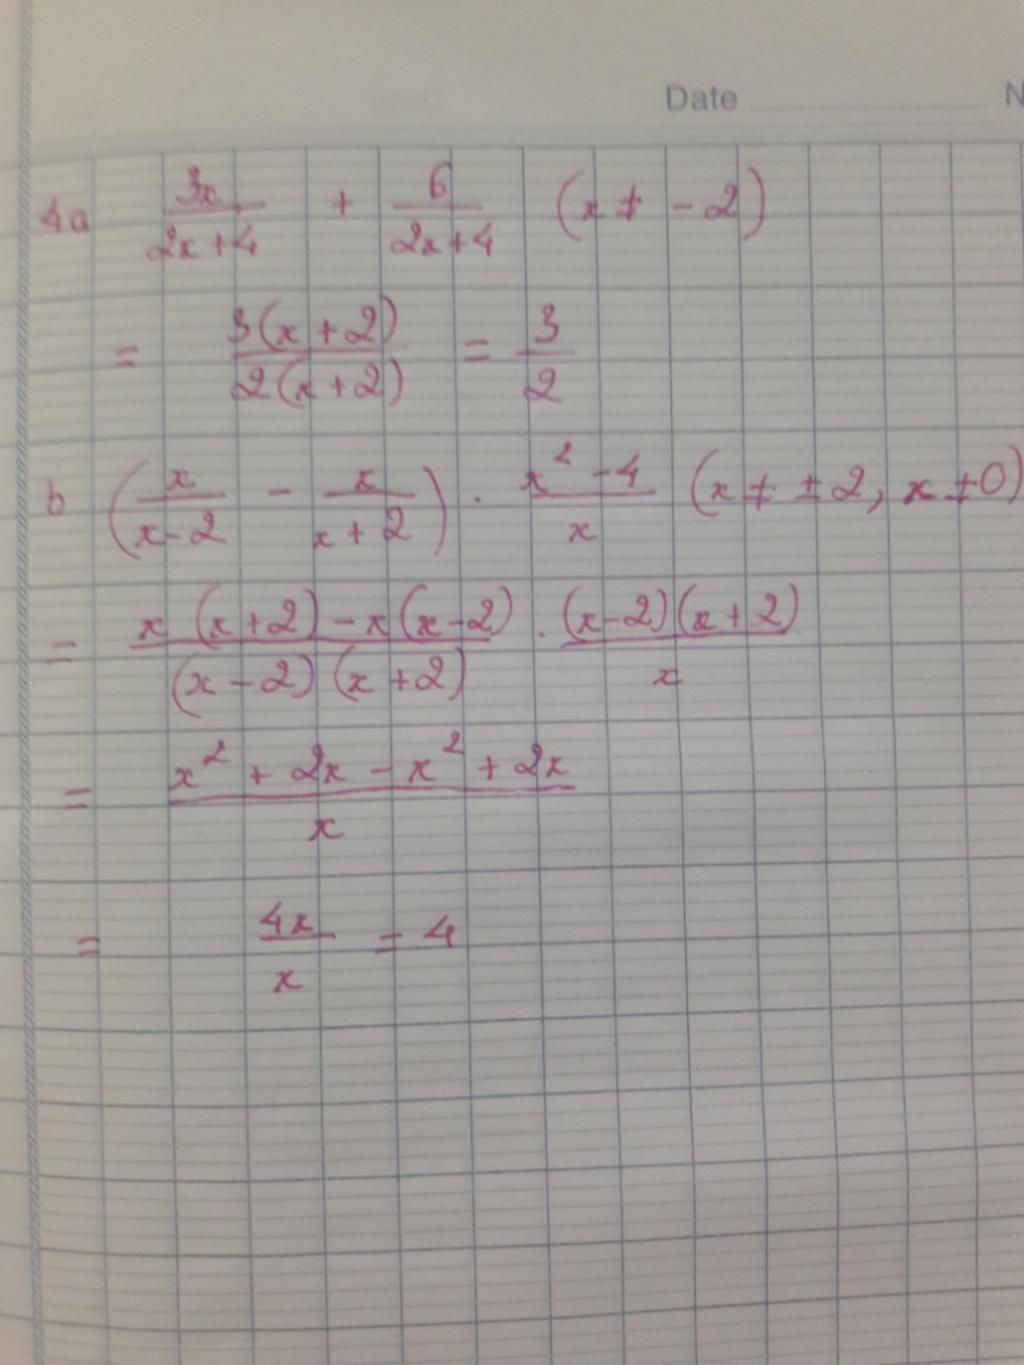 Date N
4a 3x/(2x+4) + 6/(2x+4) (x ≠ -2)
= 3(x+2)/2(x+2) = 3/2
b (x/(x-2) - x/(x+2)) . (x² - 4)/x (x ≠ ±2, x ≠ 0)
= (x (x+2) - x(x-2))/((x-2)(x+2)) . ((x-2)(x+2))/x
= (x² + 2x - x² + 2x)/x
= 4x/x = 4